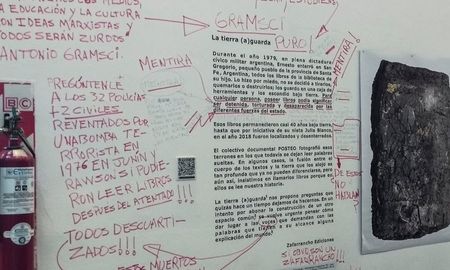 LOS MEDIOS,
LA EDUCACIÓN Y LA CULTURA
CON IDEAS MARXISTAS Y
TODOS SERÁN ZURDOS.
ANTONIO GRAMSCI.
GRAMSCI
PURO!
MENTIRA!
MENTIRA
PREGÚNTENLE
A LOS 32 POLICÍAS
REVENTADOS POR
UNA BOMBA TE-
RRORISTA EN
1976 EN JUNÍN Y
RAWSON SI PUDIE-
RON LEER LIBROS
DESPUES DEL ATENTADO!!!
TODOS DESCUARTI-
ZADOS!!!
MUERTOS
La tierra (a)guarda
Durante el año 1979, en plena dictadura
cívico militar argentina, Ernesto enterró en San
Gregorio, pequeño pueblo de la provincia de Santa
Fe, Argentina, todos los libros de la biblioteca de
su hijo. Lo hizo por miedo, no se decidía a tirarlos,
quemarlos o destruirlos; los guardó en una caja de
herramientas y los escondió bajo tierra. Para
cualquier persona, poseer libros podía significar
ser detenida, torturada y desaparecida por las
diferentes fuerzas del estado.
Esos libros permanecieron casi 40 años bajo tierra
hasta que por iniciativa de su nieta Julia Bianco,
en el año 2018 fueron localizados y desenterrados.
El colectivo documental POSTEO fotografió esos
terrones en los que todavía se dejan leer palabras
sueltas. En algunos casos, la fusión entre el
cuerpo de los textos y la tierra que los alojó es
tan profunda que ya no pueden diferenciarse, pero
aún así, insistimos en llamarlos libros porque en
ellos se lee nuestra historia.
La tierra (a)guarda nos propone preguntas en
quizás hace un tiempo dejamos de hacernos. En un
intento por abonar la construcción de un otro
espacio común, se vuelve urgente pensar cómo
dar lugar a las voces que demanden con las
palabras que tienen a su alcance alguna
explicación del mundo.
Zafarrancho Ediciones
DE ESOS
NO
HABLAN
ZAFARRANCHO!